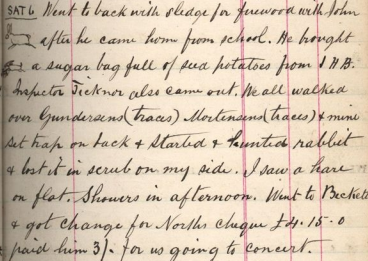 SAT 6 Went to back with sledge for firewood with John
after he came hom from school. He brought
a sugar bag full of seed potatoes from
Inspector Ticknor also came out. We all walked
over Gundersens (traces) Mortensens (traces) & mine
set trap on back & started & hunted rabbit
& lost it in scrub on my side. I saw a hare
on flat. Showers in afternoon. Went to Becketts
& got change for Norths cheque £4.15.0
paid him 3/- for us going to concert.